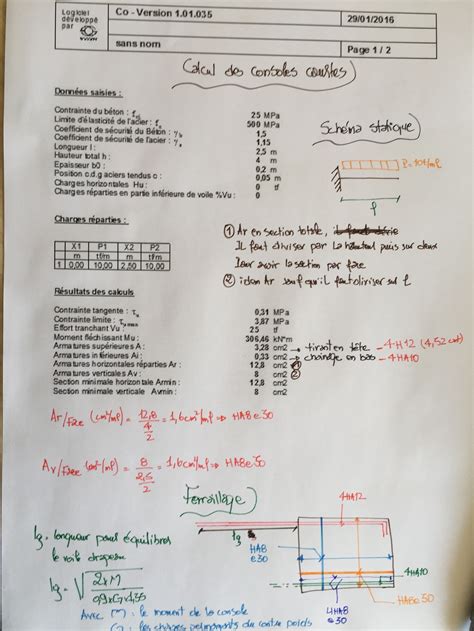 Logiciel
développé
par
Co - Version 1.01.035
29/01/2016
sans nom
Page 1 / 2
Calcul des consoles courtes
Données saisies :
Contrainte du béton : f 25 MPa
Limite d'élasticité de l'acier : f 500 MPa
Coefficient de sécurité du Béton : γb 1,5
Coefficient de sécurité de l'acier : γs 1,15
Longueur l : 2,5 m
Hauteur total h : 4 m
Epaisseur b0 : 0,2 m
Position c.d.g aciers tendus c : 0,05 m
Charges horizontales Hu : 0 tf
Charges réparties en partie inférieure de voile %Vu : 0 tf
Schéma statique
P = 10t/ml
l
Charges réparties :
X1 P1 X2 P2
m tf/m m tf/m
1 0,00 10,00 2,50 10,00
① Ar en section totale,
IL faut diviser par la hauteur puis sur deux
Pour avoir la section par face
② idem Ar sauf qu'il faut diviser sur l
Résultats des calculs
Contrainte tangente : τu 0,31 MPa
Contrainte limite : τu max 3,87 MPa
Effort tranchant Vu : 25 tf
Moment fléchissant Mu : 306,46 kN*m
Armatures supérieures A : 3,28 cm2 → tirant en tête - 4H12 (4,52 cm²)
Armatures inférieures Ai : 0,33 cm2 → chaînage en bas - 4HA10
Armatures horizontales réparties Ar : 12,8 cm2 ①
Armatures verticales Av : 8 cm2 ②
Section minimale horizontale Armin : 12,8 cm2
Section minimale verticale Avmin : 8 cm2
Ar/face (cm²/ml) = 12,8/4/2 = 1,6 cm²/ml ⇒ HA8 e30
Av/face (cm²/ml) = 8/2,5/2 = 1,6 cm²/ml ⇒ HA8 e30
Ferraillage
4HA12
lg
lg = longueur pour équilibrer
le voile drapeau
HA8
e30
4HA10
lg = √ 2xM / 0,9xGx1,35
HA8 e30
4HA8
e30
Avec M : le moment de la console
G : les charges permanents du contre poids